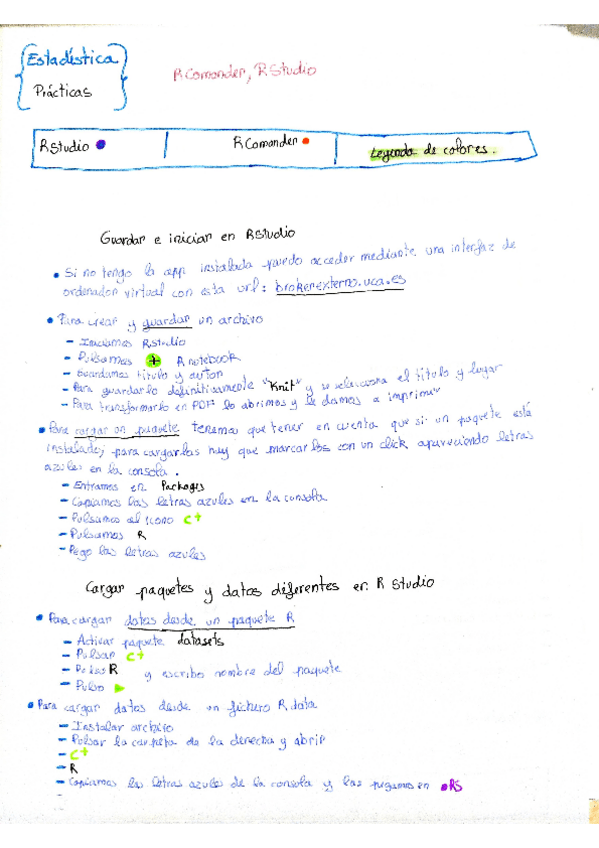 Estadística
Prácticas
RComander, RStudio
RStudio
RComander
Leyenda de colores.
Guardar e iniciar en RStudio
• Si no tengo la app instalada puedo acceder mediante una interfaz de
ordenador virtual con esta url: brokerexterno.uca.es
• Para crear y guardar un archivo
- Iniciamos RStudio
- Pulsamos + R notebook
- Guardamos título y autor
- Para guardarlo definitivamente "Knit" y se selecciona el título y lugar
- Para transformarlo en PDF lo abrimos y le damos a imprimir
• Para cargar un paquete tenemos que tener en cuenta que si un paquete está
instalado, para cargarlos hay que marcarlos con un click apareciendo letras
azules en la consola.
- Entramos en Packages
- Copiamos las letras azules en la consola
- Pulsamos el icono C+
- Pulsamos R
- Pego las letras azules
Cargar paquetes y datos diferentes en R Studio
• Para cargar datos desde un paquete R
- Activar paquete datasets
- Pulsar C+
- Pulsar R y escribo nombre del paquete
- Pulso
• Para cargar datos desde un fichero R.data
- Instalar archivo
- Pulsar la carpeta de la derecha y abrir
- C+
- R
- Copiamos las letras azules de la consola y las pegamos en RS